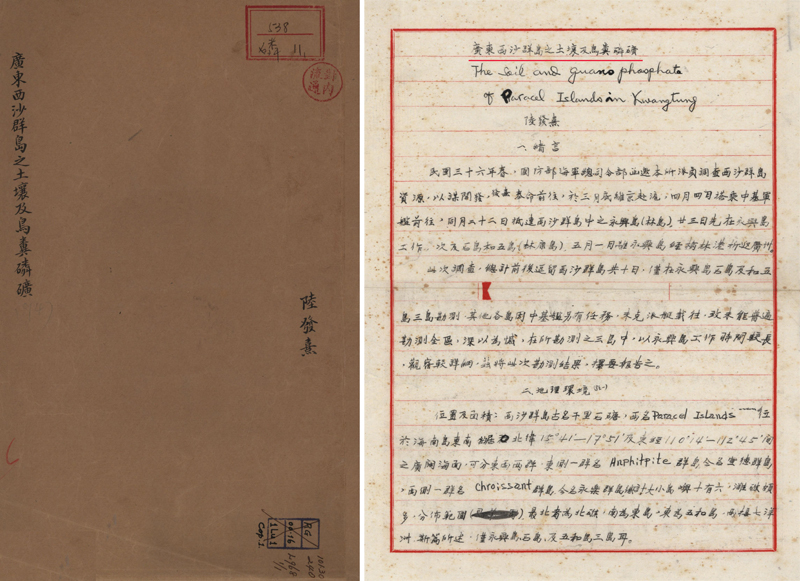 廣東西沙群島之土壤及鳥糞磷礦
陸發熹
538
廣東西沙群島之土壤及鳥糞磷礦
The Soil and guano phosphate
of Paracel Islands in Kwangtung
陸發熹
一、緒言
民國三十六年春,國防部海軍總司令部函邀本所派員調查西沙群島
資源,以謀開發,發熹奉命前往,於三月底離京赴滬,四月四日搭乘中基軍
艦前往,同月二十二日抵達西沙群島中之永興島(林島)廿三日先在永興島
工作、次及石島和五島(林康島)五月一日離永興島經榆林港折返廣州
此次調查,總計前後逗留西沙群島共十日,僅在永興島石島及和五
島三島勘測,其他各島因中基艦另有任務,未克派艇載往,致未能普遍
勘測全區,深以為憾,在所勘測之三島中,以永興島工作時間較長
,觀察較詳細,茲將此次勘測結果,擇要報告之。
二、地理環境
位置及面積:西沙群島古名千里石塘,西名Paracel Islands 位
於海南島東南 北緯15°41'—17°51'及東經110°14'—112°45'間
之廣闊海面,可分東西兩群,東側一群名 Anphitpite 群島今名宣德群島
,西側一群名 Chroissant 群島今名永樂群島總計大小島嶼十有六,灘礁頗
多,分佈範圍 最北者為北礁,南為東島,東為五和島,西接七洋
洲 斯篇所述,僅永興島石島及五和島三島耳。
RG